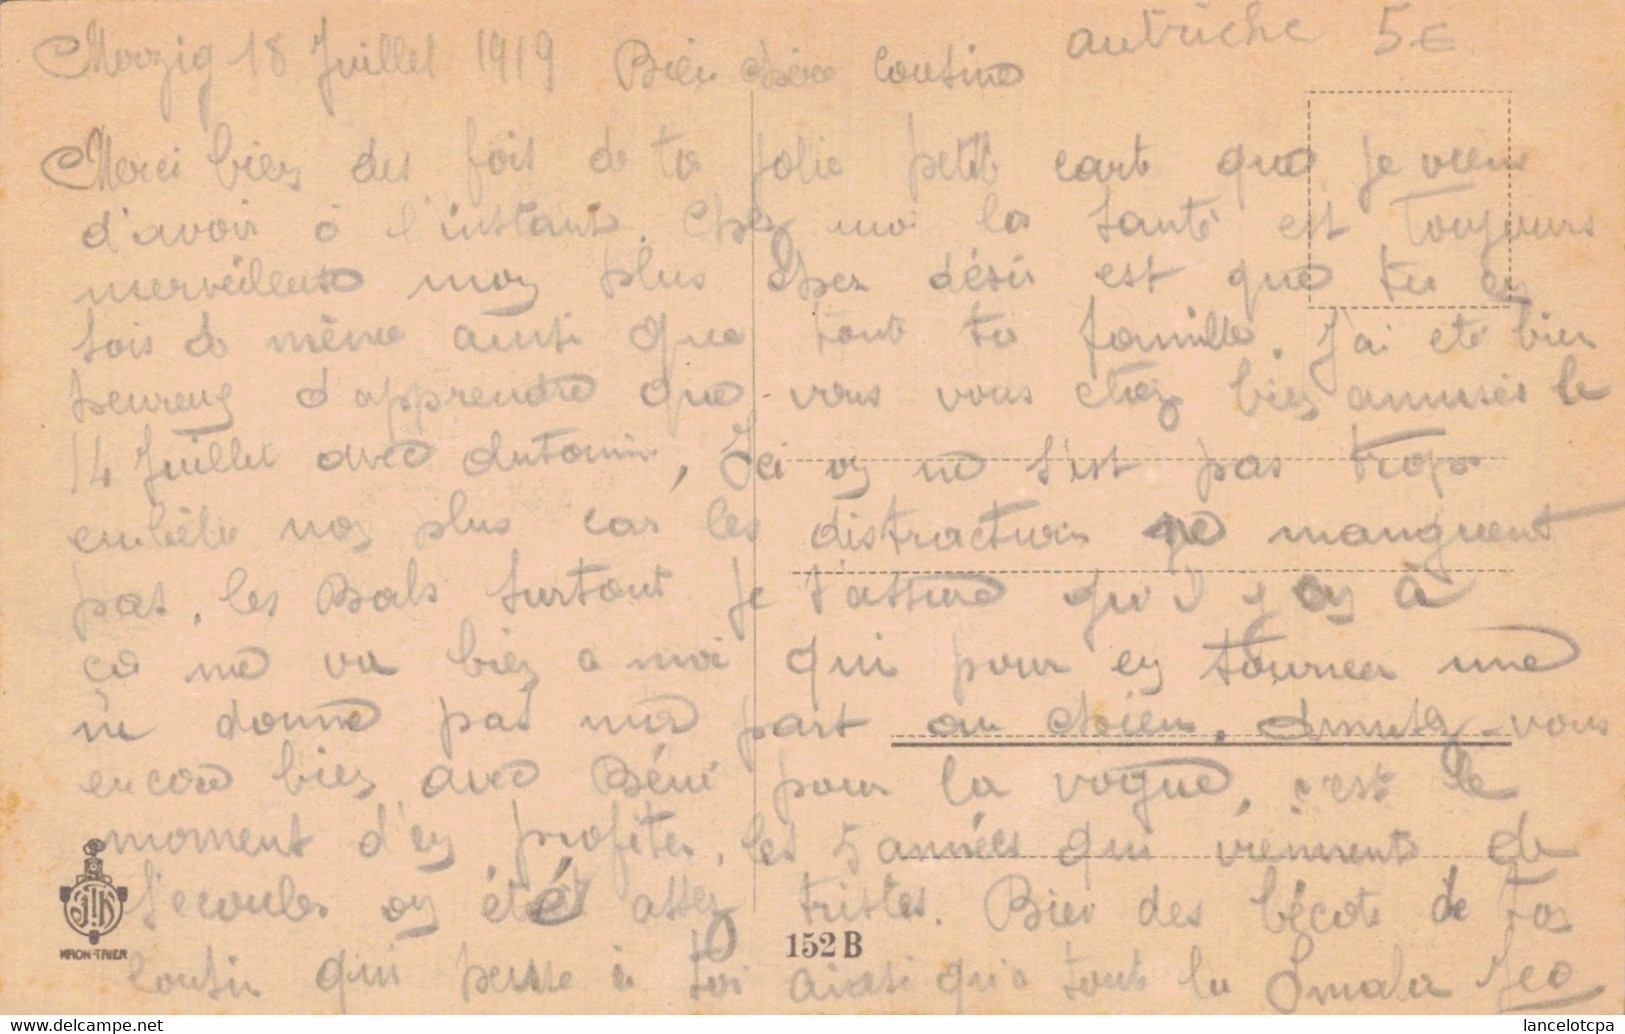 Merzig 18 Juillet 1919 Bien chère Cousine
autriche 5€
Merci bien des fois de ta jolie petit cart que je viens
d'avoir à l'instant. Chez moi la santé est toujours
merveilleuse mon plus cher désir est que tu en
sois de même ainsi que tout ta famille. J'ai eté bien
heureux d'apprendre que vous vous etiez bien amusés le
14 Juillet avec Antonin, Ici on ne s'est pas trop
embêté non plus car les distractions ne manquent
pas, les Bals surtout je t'assure qu'il y en à
ça me va bien a moi qui pour en tourner une
ne donne pas ma part au chien. Amusez-vous
encore bien avec Béné pour la vogue, c'est le
moment d'en profiter, les 5 années qui viennent de
s'ecouler on été assez tristes. Bien des bécots de ton
Cousin qui pense à toi ainsi qu'a tout la Smala Geo
JTK
KRON-TRIER
152 B
www.delcampe.net
lancelotcpa